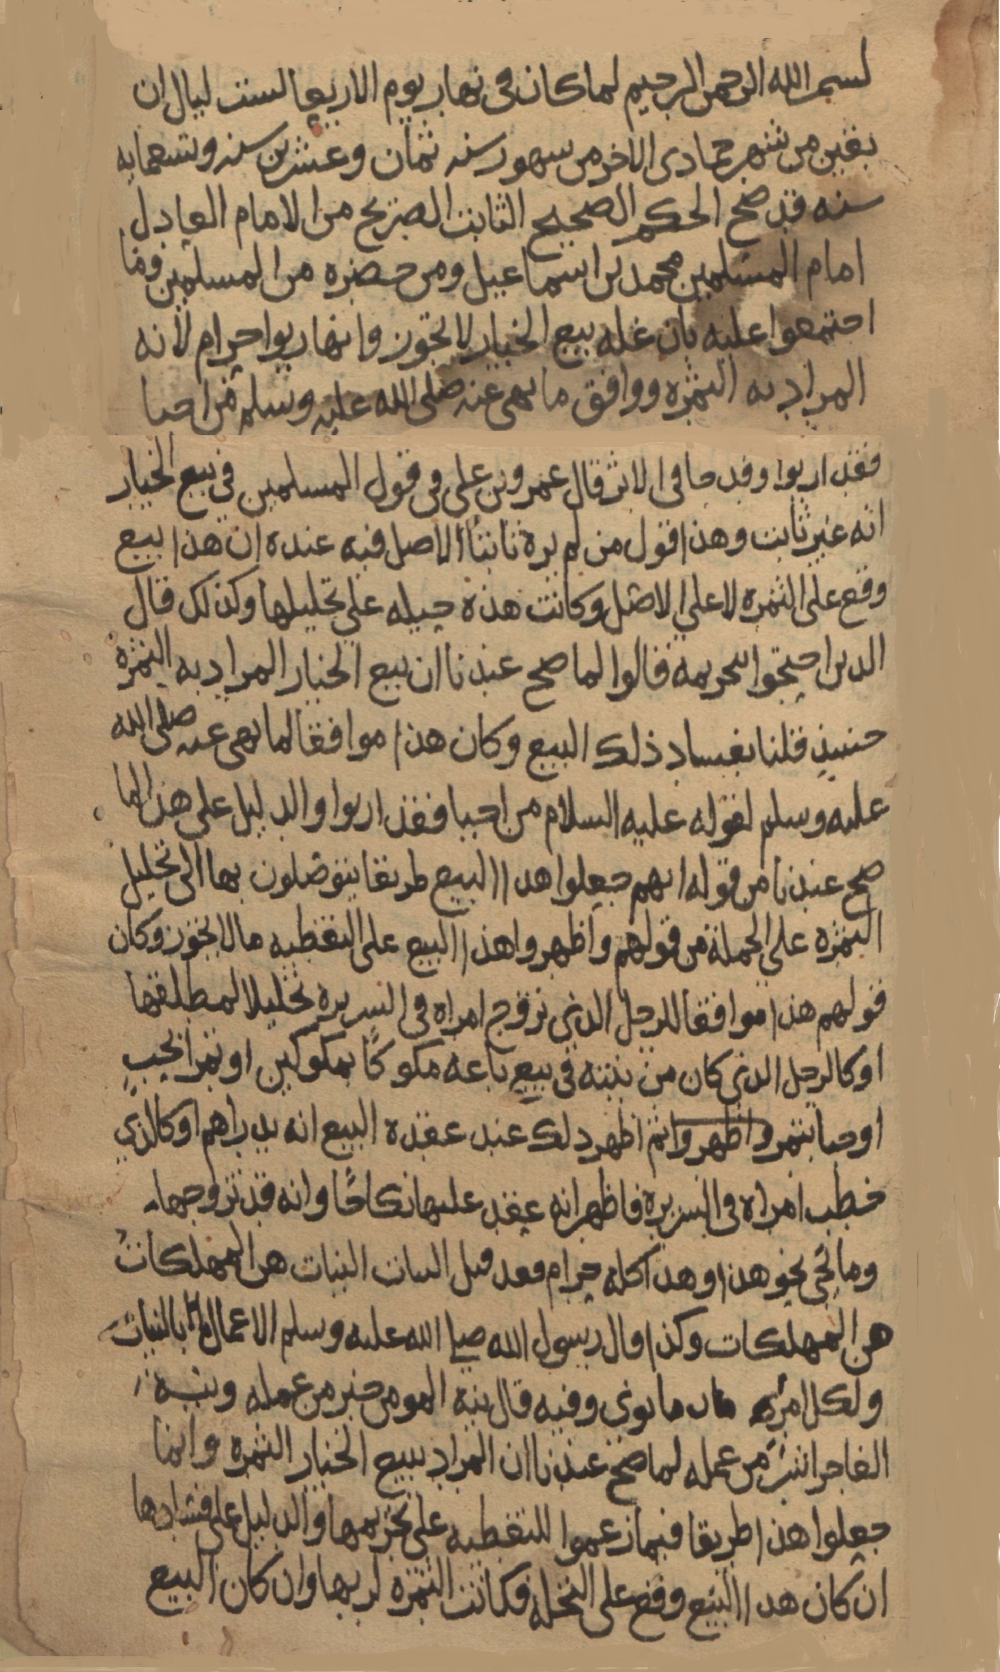 بسم الله الرحمن الرحيم لما كان في نهار يوم الاربعا لست ليال ان
بقين من شهر جمادى الاخر من شهور سنه ثمان وعشرين سنه وتسعمايه
سنه قد صح الحكم الصحيح الثابت الصريح من الامام العادل
امام المسلمين محمد بن اسماعيل ومن حضره من المسلمين وما
اجتمعوا عليه بان غله بيع الخيار لا تجوز وانها ربوا حرام لانه
المراد به الثمره ووافق ما نهى عنه صلى الله عليه وسلم من اجبا
فقد اربوا وقد جا في الاثر قال عمرو بن علي وفي قول المسلمين في بيع الخيار
انه غير ثابت وهذا قول من لم يره ثابتا الاصل فيه عنده ان هذا بيع
وقع على الثمره لا على الاصل وكانت هذه حيله على تحليلها وكذلك قال
الذين احتجوا بتحريمه قالوا لما صح عندنا ان بيع الخيار المراد به الثمره
حينيذ قلنا بفساد ذلك البيع وكان هذا موافقا لما نهى عنه صلى الله
عليه وسلم لقوله عليه السلام من اجبا فقد اربوا والدليل على هذا لما
صح عندنا من قوله انهم جعلوا هذا البيع طريقا يتوصلون بها الى تحليل
الثمره على الجملة من قولهم واظهروا هذا البيع على التغطيه ما لا يجوز وكان
قولهم هذا موافقا للرجل الذي تزوج امراه في السريره تحليلا لمطلقها
او كالرجل الذي كان من نيته في بيع باعه مكوكا بمكوكين او تمرا بحب
او حبا بتمر واظهروا ثم اظهر ذلك عند عقدة البيع انه بدراهم او كالذي
خطب امراه في السريره فاظهر انه عقد عليها نكاحا وانه قد تزوجها
وما يجي نحو هذا وهذا كله حرام فقد قيل النيات النيات هن المهلكات
هن المهلكات وكذا قال رسول الله صلى الله عليه وسلم الاعمال بالنيات
ولكل امرئ ما نوى وفيه قال نية المومن خير من عمله ونية
الفاجر اشر من عمله لما صح عندنا ان المراد ببيع الخيار الثمره وانما
جعلوا هذا طريقا فيما زعموا للتغطيه على تحريمها والدليل على فسادها
ان كان هذا البيع وقع على النخله فكانت الثمره لربها وان كان البيع